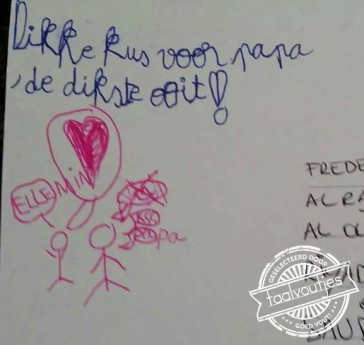 Dikke kus voor papa
, de dikste ooit!
ELLE
MIN
pa
FREDE
AL RA
AL OL
GESELECTEERD DOOR
taalvoutjes
GOED VOUT!